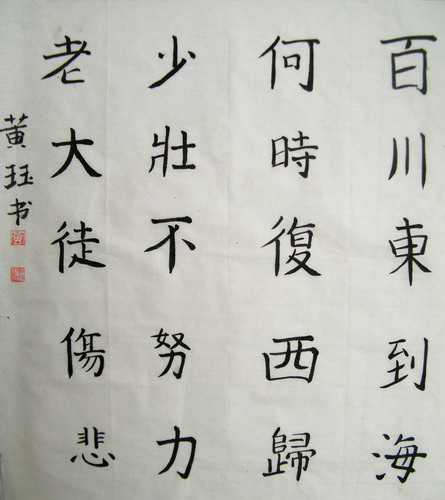 百川東到海
何時復西歸
少壯不努力
老大徒傷悲
黄珏书